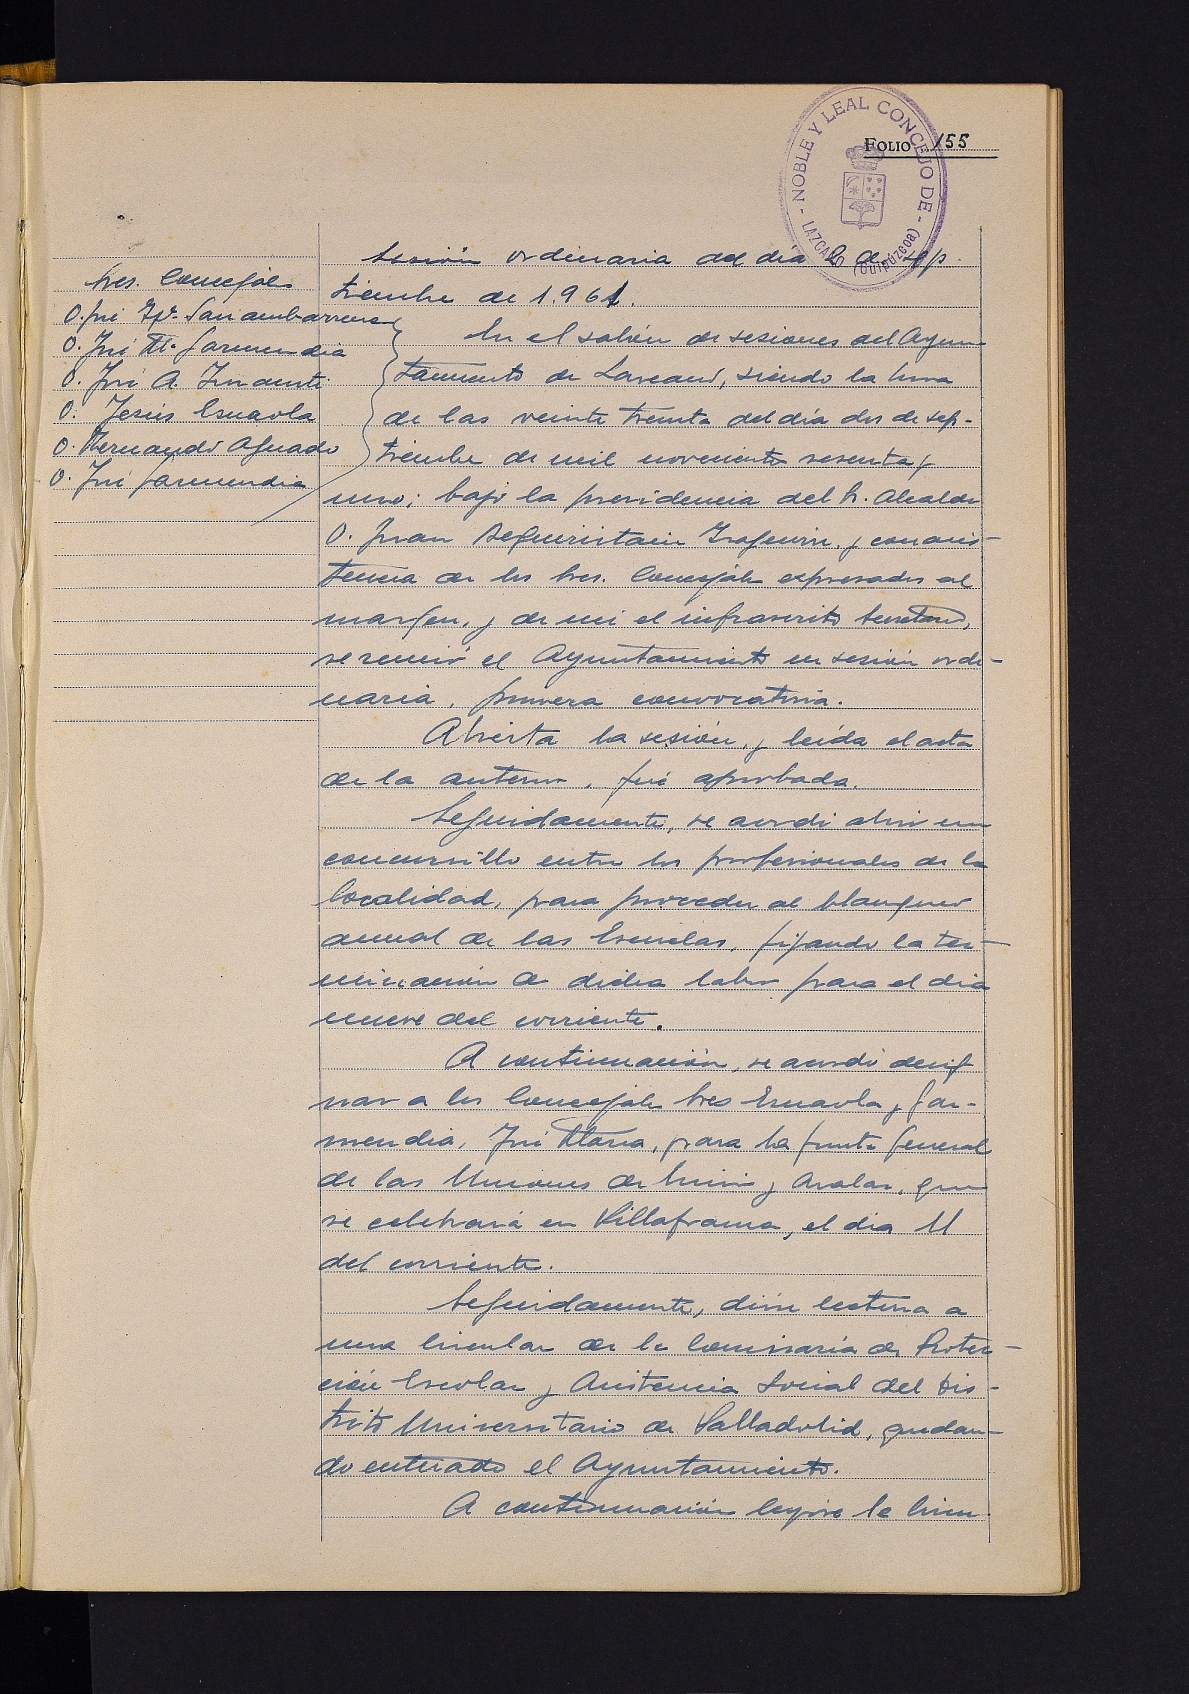 NOBLE Y LEAL CONCEJO DE
LAZCANO (Guipúzcoa)
FOLIO 155
Sres. Concejales
D. José Igº. Sarrambarrena
D. José Mª Garmendia
D. José A.
D. Jesús Esnaola
D. Hernando Aguado
D. José Garmendia
Sesión ordinaria del día 2 de sep-
tiembre de 1.961.
En el salón de sesiones del Ayun-
tamiento de Lazcano, siendo la hora
de las veinte treinta del día dos de sep-
tiembre de mil novecientos sesenta y
uno; bajo la presidencia del Sr. Alcalde
D. Juan Aseguinolain y con asis-
tencia de los Sres. Concejales expresados al
margen, y de mi el infrascrito Secretario,
se reunió el Ayuntamiento en sesión ordi-
naria, primera convocatoria.
Abierta la sesión, y leída el acta
de la anterior, fué aprobada.
Seguidamente, se acordó abrir un
concursillo entre los profesionales de la
localidad, para proceder al blanqueo
anual de las Escuelas, fijando la ter-
minación de dicha labor para el día
nueve del corriente.
A continuación, se acordó desig
nar a los Concejales Sres Esnaola y Gar-
mendia, José María, para la Junta General
de las Uniones de Enirio y Aralar, que
se celebrará en Villafranca, el día 11
del corriente.
Seguidamente, dióse lectura a
una Circular de la Comisaría de Protec-
ción Escolar y Asistencia Social del Dis-
trito Universitario de Valladolid, quedan-
do enterado el Ayuntamiento.
A continuación leyóse la Circu-